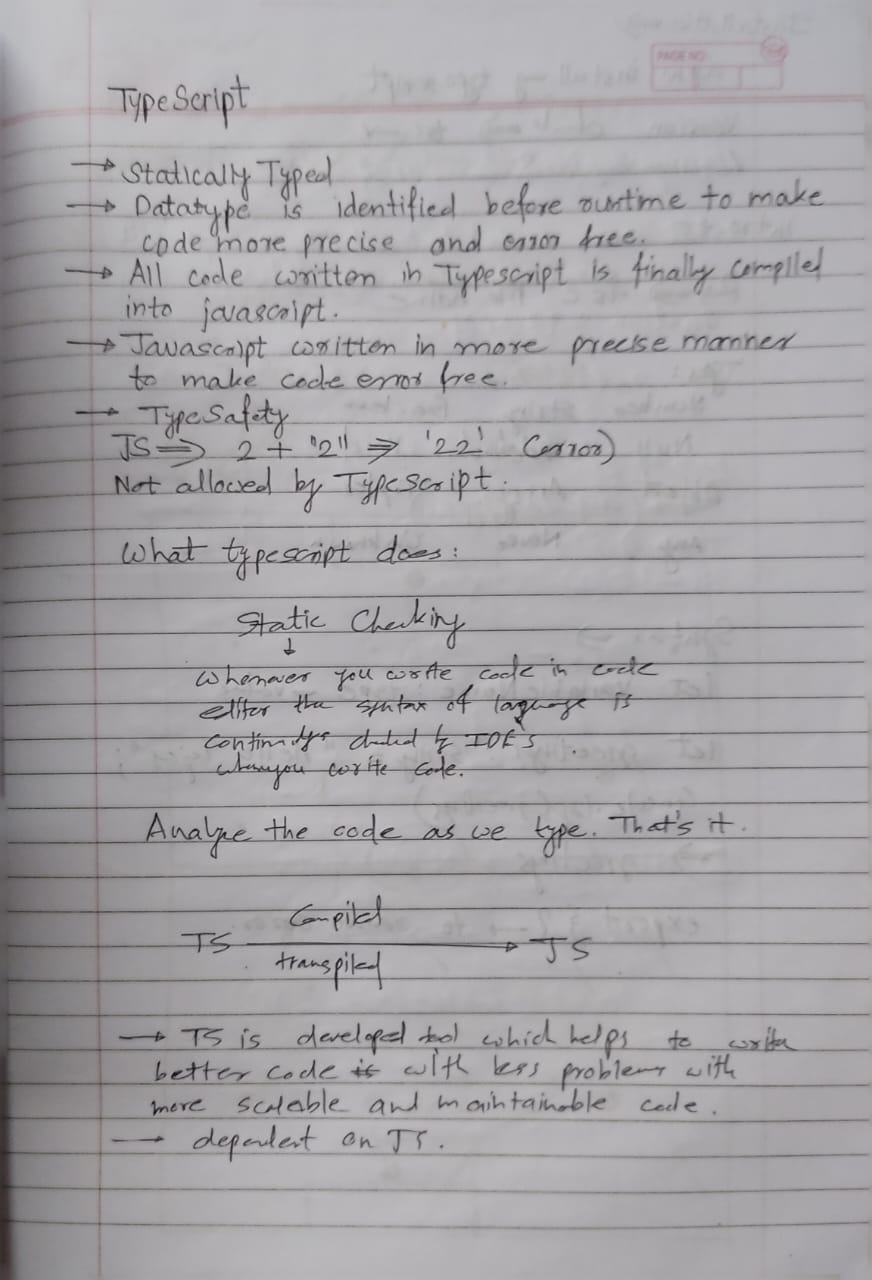 PAGE NO:
TypeScript
→ Statically Typed
→ Datatype is identified before runtime to make
code more precise and error free.
→ All code written in Typescript is finally compiled
into javascript.
→ Javascript written in more precise manner
to make code error free.
→ TypeSafety
JS ⇒ 2 + "2" ⇒ '22' (error)
Not allowed by TypeScript.
What typescript does:
Static Checking
↓
Whenever you write code in code
editor the syntax of language is
checked by IDE's
when you write code.
Analyze the code as we type. That's it.
Compiled
TS → JS
transpiled
→ TS is developed tool which helps to write
better code with less problems with
more scalable and maintainable code.
→ dependent on JS.